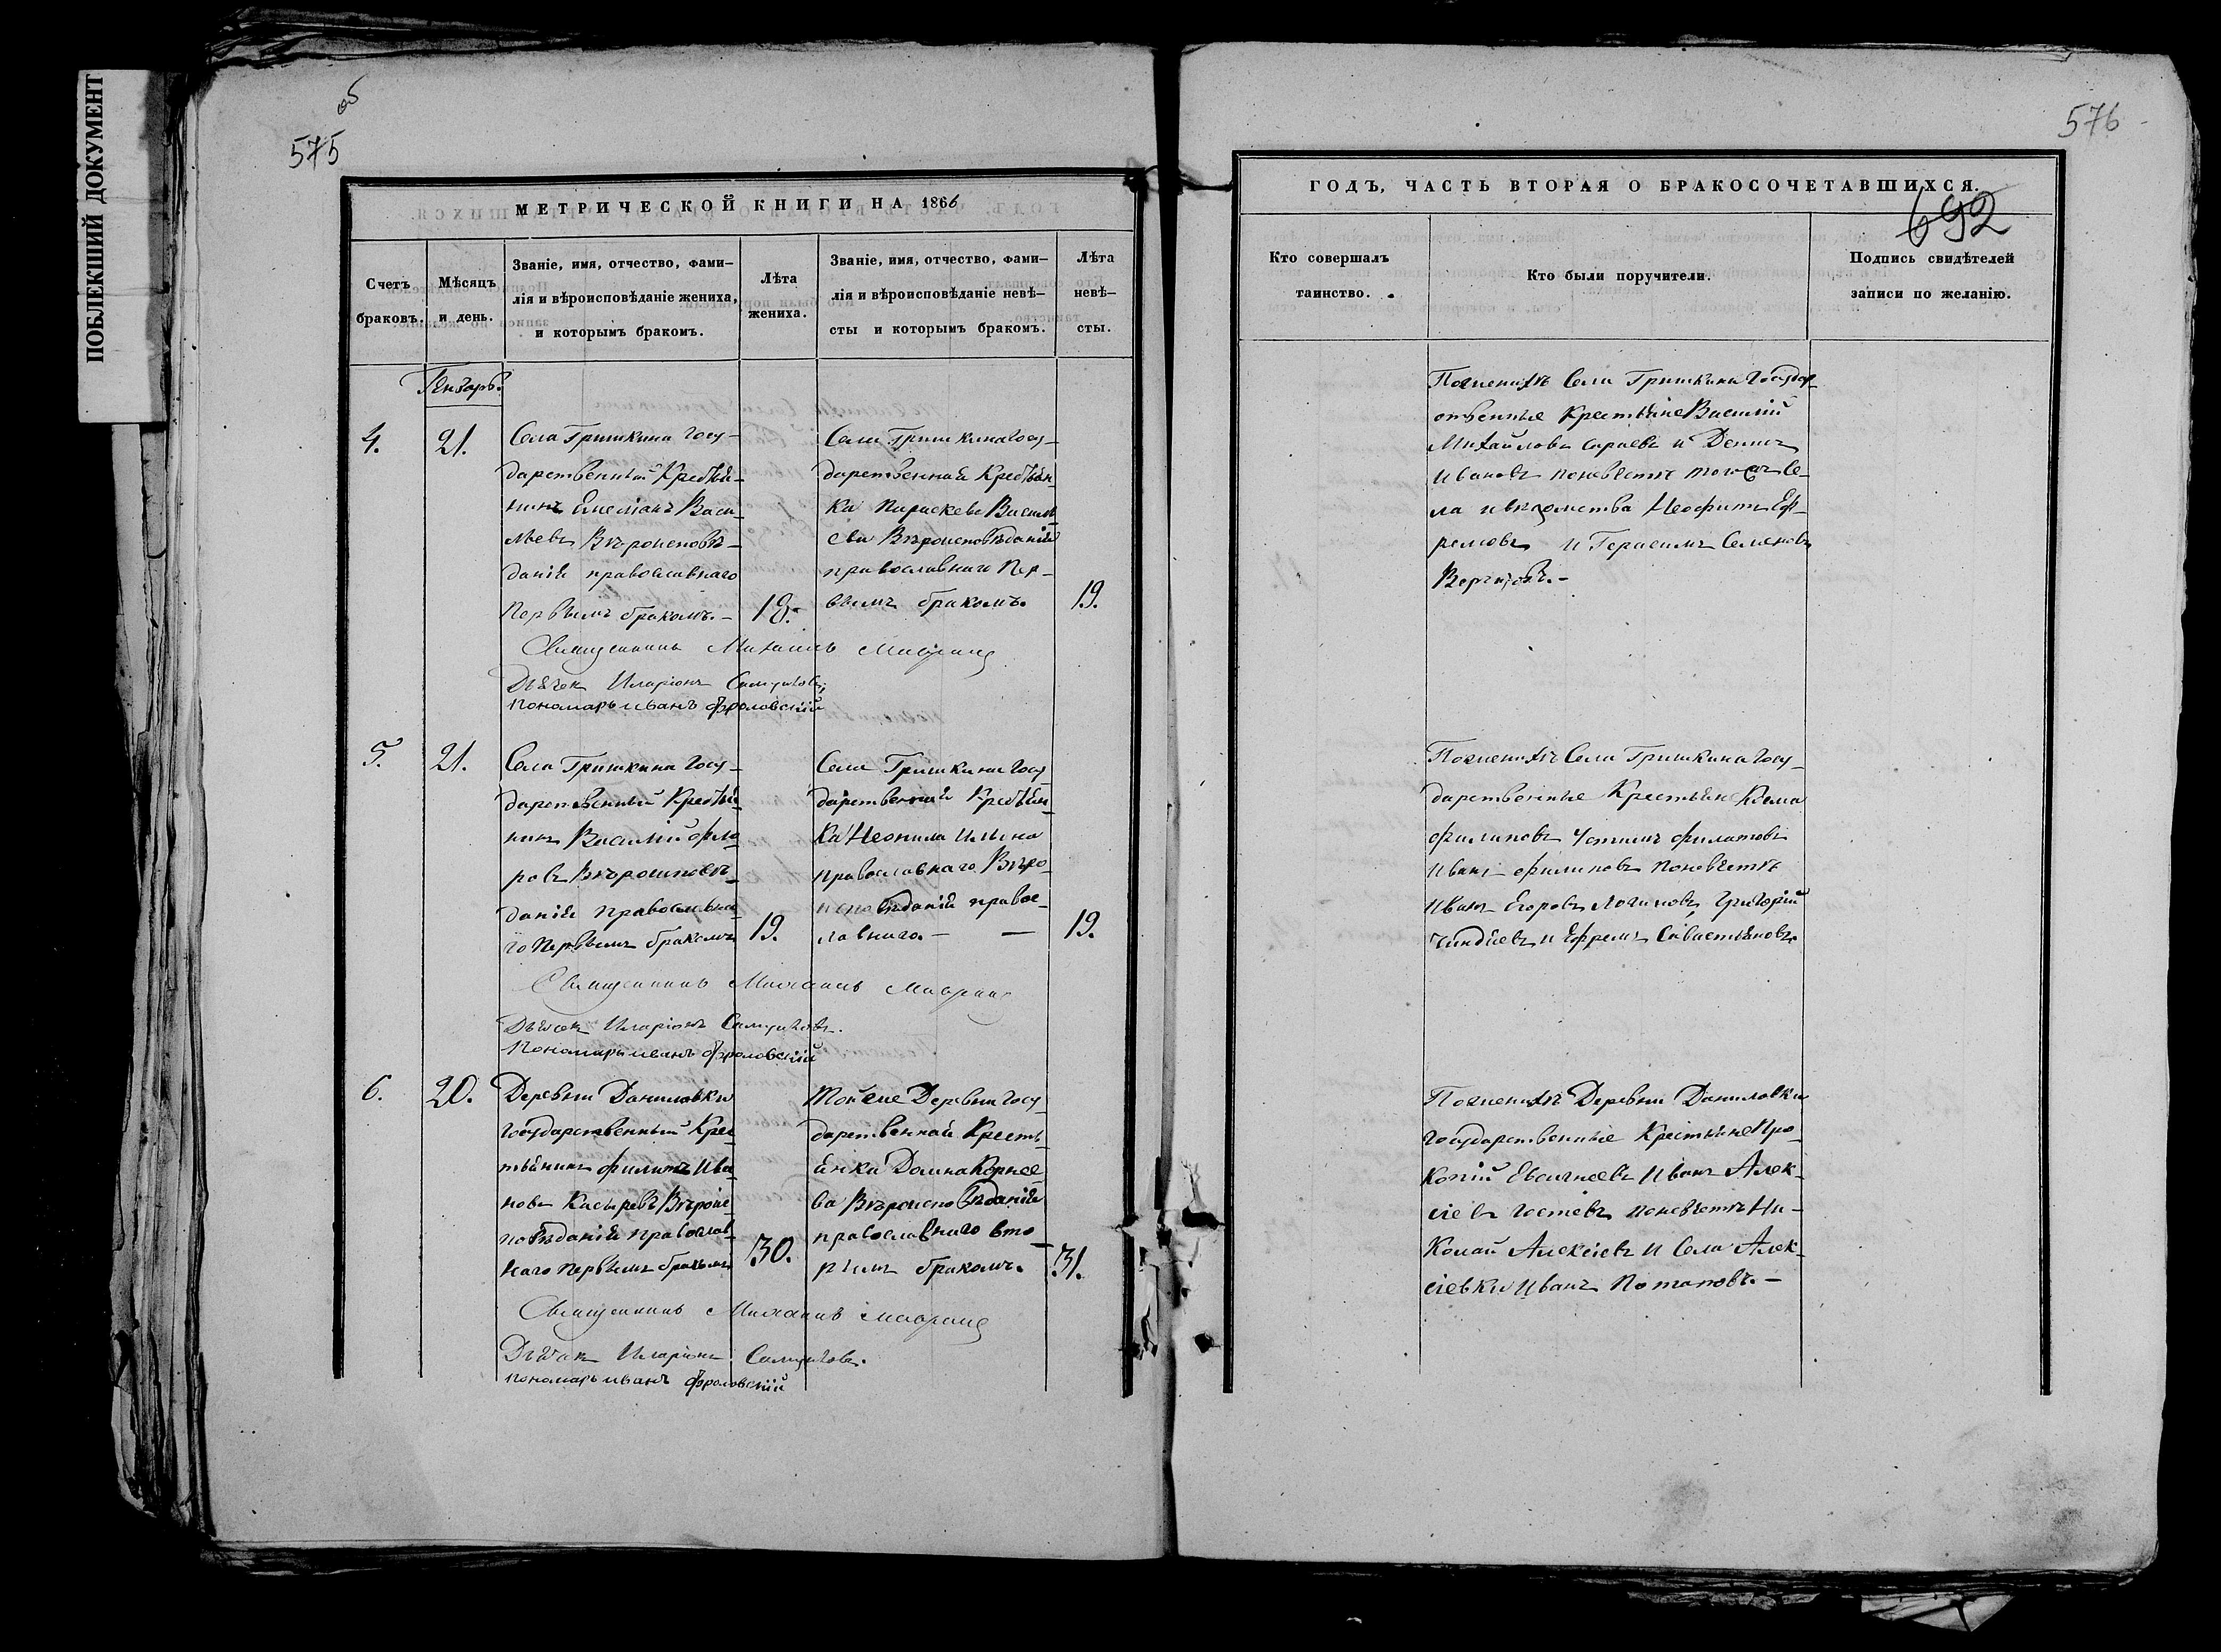 ПОБЛЕКШИЙ ДОКУМЕНТ
об
575
МЕТРИЧЕСКОЙ КНИГИ НА 1866
Счетъ
браковъ.
Мѣсяцъ
и день.
Званіе, имя, отчество, фами-
лія и вѣроисповѣданіе жениха,
и которымъ бракомъ.
Лѣта
жениха.
Званіе, имя, отчество, фами-
лія и вѣроисповѣданіе невѣ-
сты и которымъ бракомъ.
Лѣта
невѣ-
сты.
Генварь.
4.
21.
Села Гришкина Госу-
дарственный Кресть̆я-
нинъ Емеліанъ Васи-
льевъ Вѣроисповѣ-
данія православнаго
Первымъ бракомъ.-
18.-
Села Гришкина Госу-
дарственная Крестьян-
ка Параскева Василь
ева Вѣроисповѣданія
православнаго Пер-
вымъ бракомъ.
19.
Священникъ Михаилъ
Дьячек Иларіонъ
Пономарь Иванъ Фроловскій
5.
21.
Села Гришкина Госу-
дарственный Крестья
нинъ Василій Фло
ровъ Вѣроисповѣ-
данія Православна
го Первымъ бракомъ
19.
Села Гришкина Госу
дарственная Крестьян-
ка Неонила Ильина
православнаго Вѣро-
исповѣданія правос-
лавнаго. - -
19.
Священникъ Михаилъ
Дьячек Иларіонъ
Пономарь Иванъ Фроловскій
6.
20.
Деревни Даниловки
Государственный Крес
тьянинъ Филипъ Ива
новъ Вѣроис-
повѣданія православ-
наго первымъ бракомъ
30.
Той же Деревни Госу-
дарственная Кресть
янка Домна Корнее-
ва Вѣроисповѣданія
православнаго вто
рымъ бракомъ.
31.
Священникъ Михаилъ
Дьячек Иларіонъ
Пономарь Иванъ Фроловскій
576
ГОДЪ, ЧАСТЬ ВТОРАЯ О БРАКОСОЧЕТАВШИХСЯ.
692
Кто совершалъ
таинство.
Кто были поручители.
Подпись свидѣтелей
записи по желанію.
По женихѣ Села Гришкина Государ-
ственные Крестьяне Василій
Михайловъ и Денисъ
Ивановъ по невѣстѣ того жъ Се-
ла и вѣдомства Неофитъ Еф-
ремовъ и Герасимъ Семеновъ
По женихѣ Села Гришкина Госу-
дарственные Крестьяне Козма
Филиповъ Филатовъ
Иванъ Филиповъ по невѣстѣ
Иванъ Егоровъ Логиновъ, Григорій
и Ефремъ Савастьяновъ.
По женихѣ Деревни Даниловки
Государственные Крестьяне Про-
копій Евсигнеевъ Иванъ Алек-
сіевъ по невѣстѣ Ни-
колай Алексіевъ и Села Алек-
сіевки Иванъ Потаповъ.-